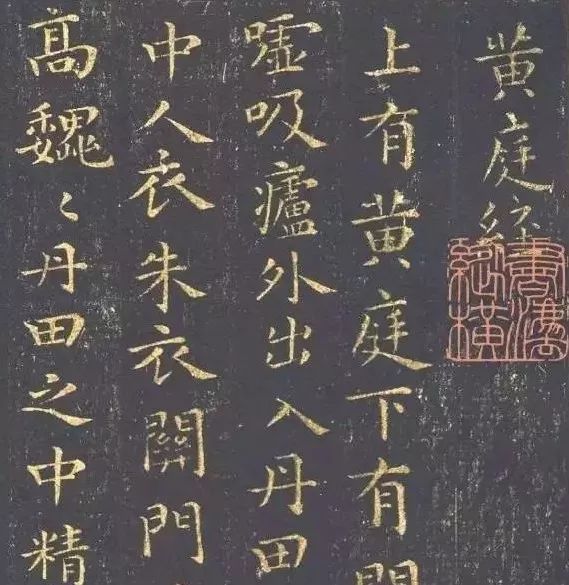 黄庭經
上有黄庭下有
嘘吸廬外出入丹田
中人衣朱衣關門
髙魏〻丹田之中精